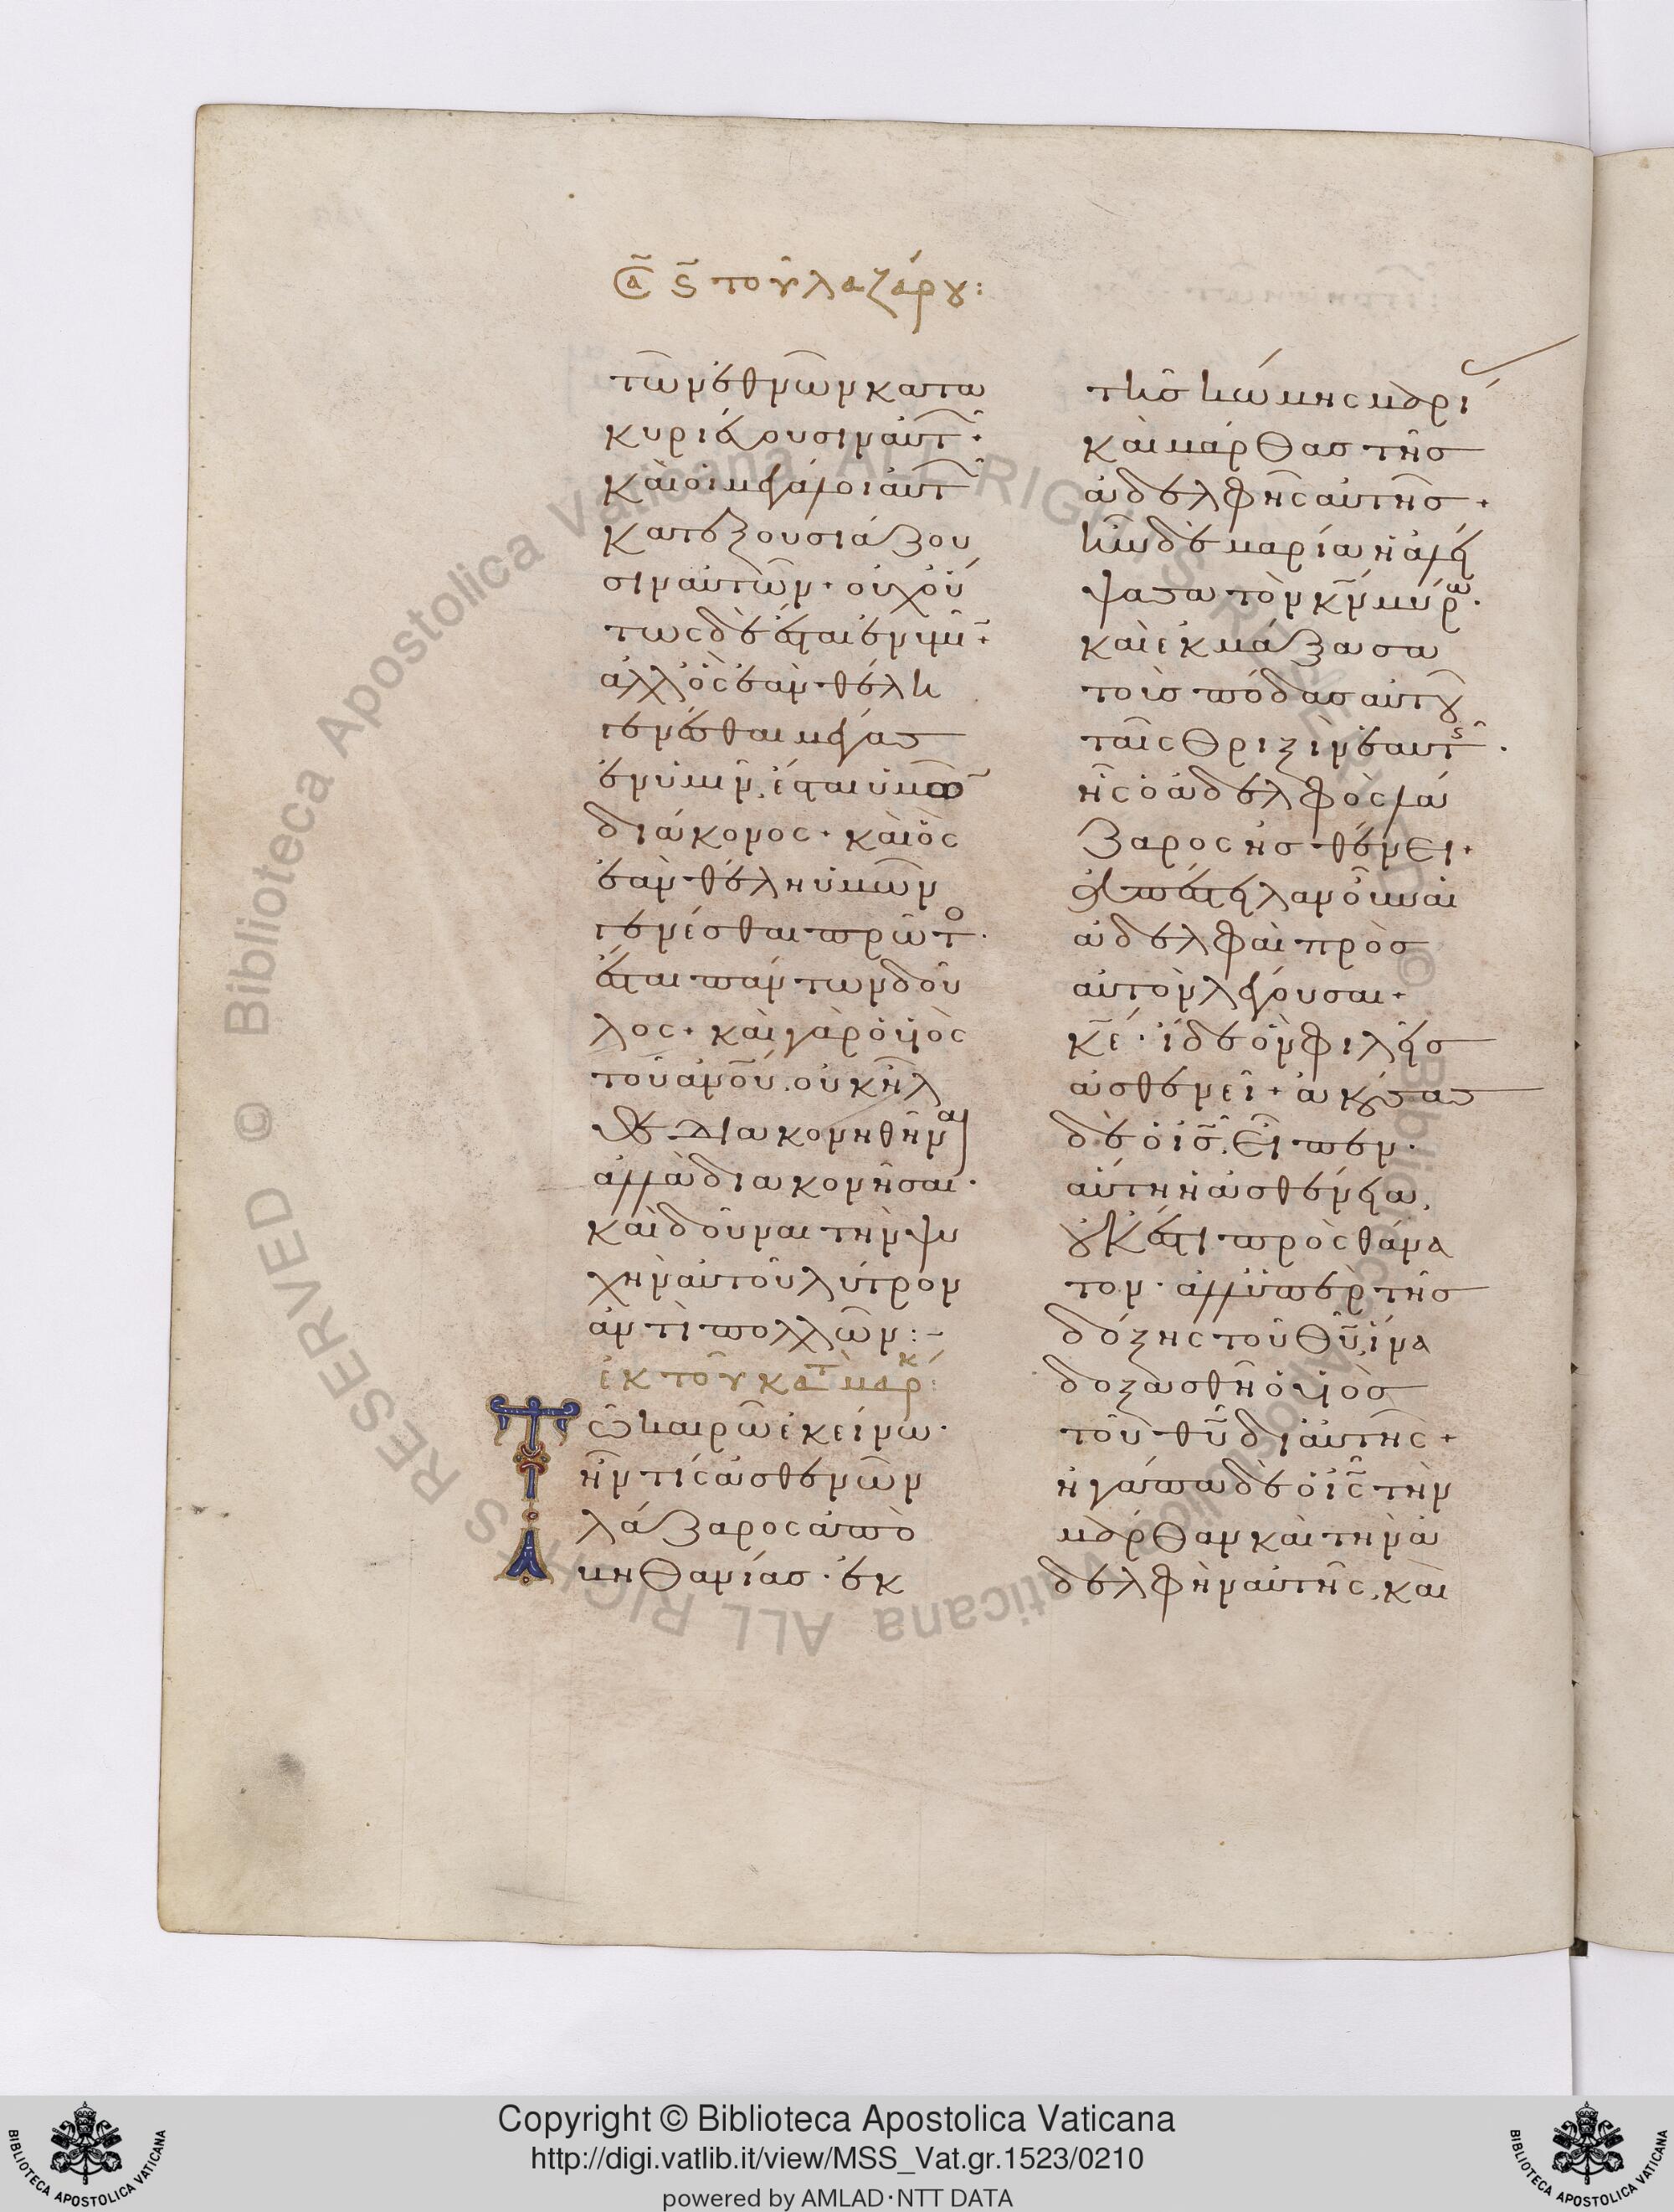 Σα ϛ τοῦ λαζάρου:
τῶν ἐθνῶν κατα
κυριεύουσιν αὐτ·
καὶ οἱ μεγάλοι αὐτ
κατεξουσιάζου
σιν αὐτῶν· οὐχ οὕ
τως δὲ ἔσται ἐν ὑμῖ·
ἀλλ' ὃς ἐὰν θέλη
γενέσθαι μέγασ
ἐν ὑμῖν, ἔσται ὑμῶ
διάκονος· καὶ ὃς
ἐὰν θέλη ὑμῶν
γενέσθαι πρῶτο·
ἔσται πάντων δοῦ
λος· καὶ γὰρ ὁ υἱὸς
τοῦ ἀνοῦ. οὐκ ἦλ
θε διακονηθῆναι
ἀλλὰ διακονῆσαι·
καὶ δοῦναι τὴν ψυ
χὴν αὐτοῦ λύτρον
ἀντὶ πολλῶν:-
ἐκ τοῦ κατ μάρκ:
Τῶ καιρῶ ἐκείνω·
ἦν τίς ἀσθενῶν
λάζαρος ἀπὸ
βηθανίας· ἐκ
τῆς κώμης μαρί
καὶ μάρθας τῆς
ἀδελφῆς αὐτῆς·
ἦν δὲ μαρία ἡ ἀλεί
ψασα τὸν κν μύρω·
καὶ ἐκμάξασα
τοὺς πόδας αὐτοῦ
ταῖς θριξὶν ἑαυτῆς·
ἧς ὁ ἀδελφὸς λά
ζαρος ἠσθένει·
ἀπέστειλαν οὖν αἱ
ἀδελφαὶ πρὸς
αὐτὸν λέγουσαι·
κε· ἴδε ὃν φιλεῖς
ἀσθενεῖ· ἀκούσας
δὲ ὁ ις, εἶπεν·
αὕτη ἡ ἀσθένεια,
οὐκ ἔστι πρὸς θάνα
τον· ἀλλ' ὑπὲρ τῆς
δόξης τοῦ θυ, ἵνα
δοξασθῆ ὁ υἱὸς
τοῦ θυ δι' αὐτῆς·
ἠγάπα δὲ ὁ ις τὴν
μάρθαν καὶ τὴν ἀ
δελφὴν αὐτῆς, καὶ
BIBLIOTECA APOSTOLICA VATICANA
Copyright © Biblioteca Apostolica Vaticana
http://digi.vatlib.it/view/MSS_Vat.gr.1523/0210
powered by AMLAD·NTT DATA
BIBLIOTECA APOSTOLICA VATICANA
© Biblioteca Apostolica Vaticana ALL RIGHTS RESERVED